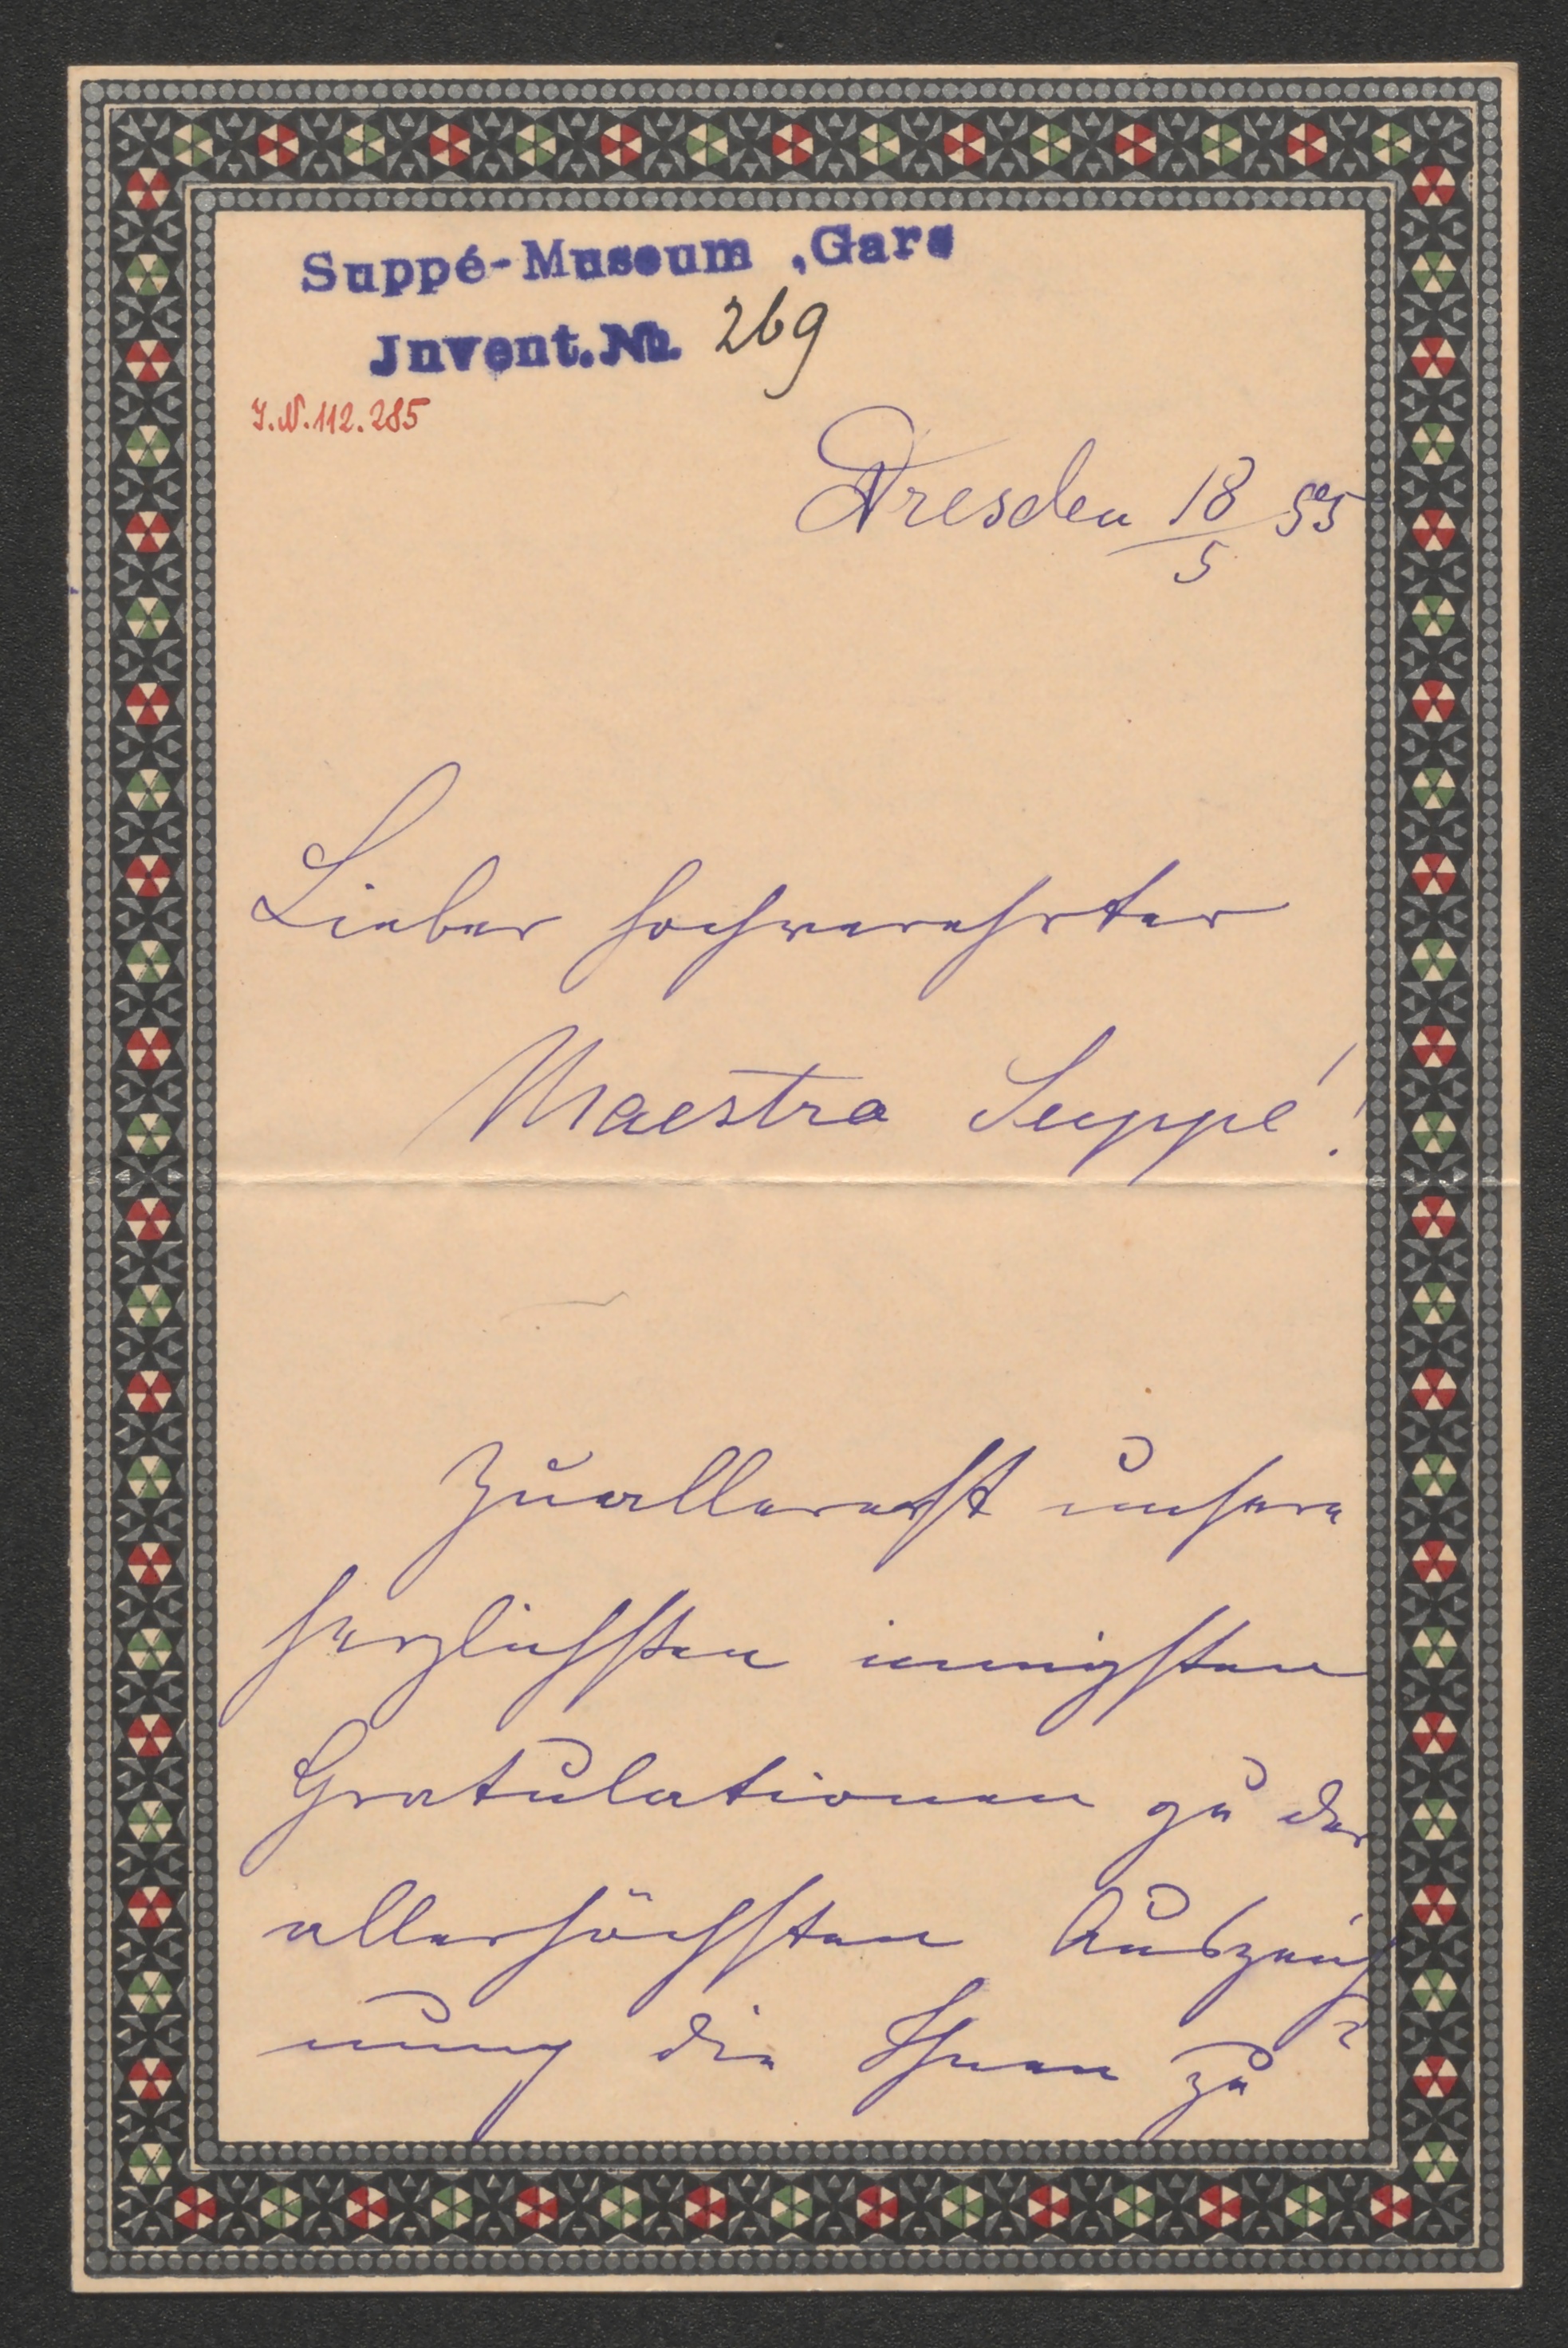 Suppé-Museum, Gars
Jnvent.No. 269
I.N. 112.285
Dresden 18/5
Lieber hochverehrter
Maestro Suppé!
Zuallererst unsere
herzlichsten innigsten
Gratulationen zu der
allerhöchsten Auszeich-
nung die Ihnen zu